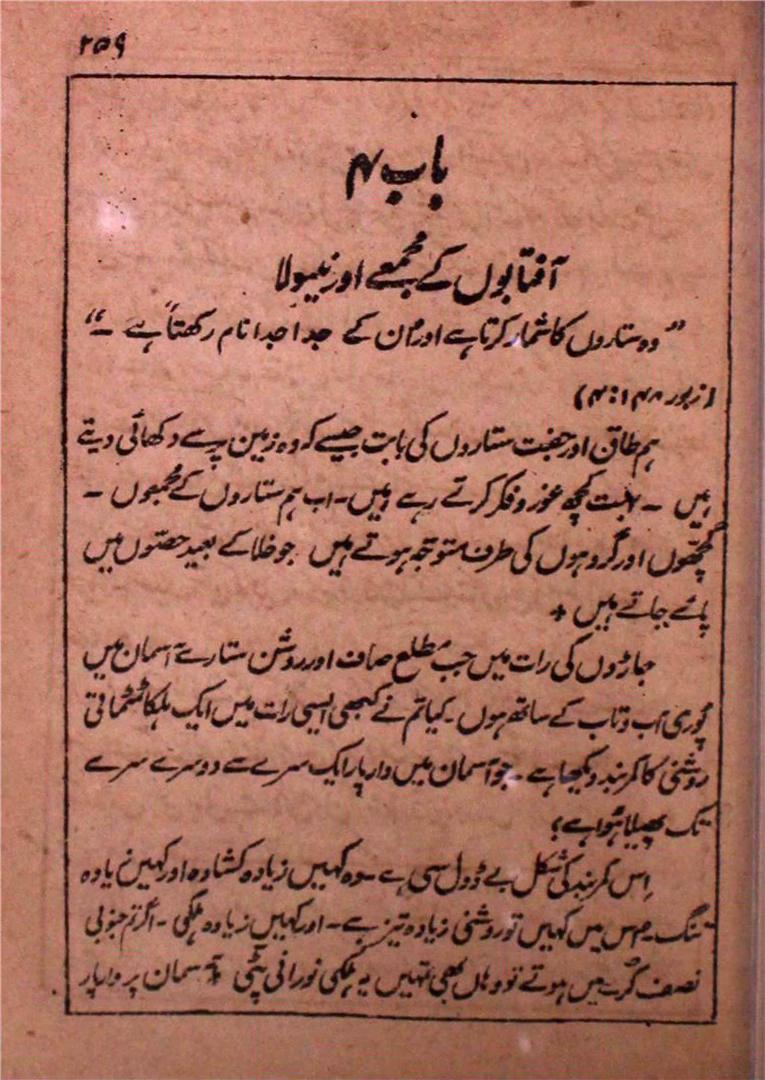 ۲۵۹
باب ۴
آفتابوں کے مجمعے اور نیبولا
”وہ ستاروں کا شمار کرتا ہے اور اُن کے جدا جدا نام رکھتا ہے ۔“
(زبور ۱۴۸:۴)
ہم طاق اور جفت ستاروں کی بابت جیسے کہ وہ زمین پر سے دکھائی دیتے
ہیں ۔ بہت کچھ غور و فکر کرتے رہے ہیں۔ اب ہم ستاروں کے مجمعوں ۔
گچھّوں اور گروہوں کی طرف متوجہ ہوتے ہیں جو خلا کے بعید حصّوں میں
پائے جاتے ہیں +
جاڑوں کی رات میں جب مطلع صاف اور روشن ستارے آسمان میں
پُوری آب و تاب کے ساتھ ہوں۔ کیا تم نے کبھی ایسی رات میں ایک ہلکا ٹمٹماتی
روشنی کا کمربند دیکھا ہے ۔ جو آسمان میں وار پار ایک سرے سے دوسرے سرے
تک پھیلا ہُوا ہے؟
اِس کمربند کی شکل بے ڈول سی ہے ۔ وہ کہیں زیادہ کشادہ اور کہیں زیادہ
تنگ۔ اس میں کہیں تو روشنی زیادہ تیز ہے۔ اور کہیں زیادہ ہلکی ۔ اگر تم جنوبی
نصف کُرے میں ہوتے تو وہاں بھی تمہیں یہ ہلکی نورانی پٹّی آسمان پر وار پار